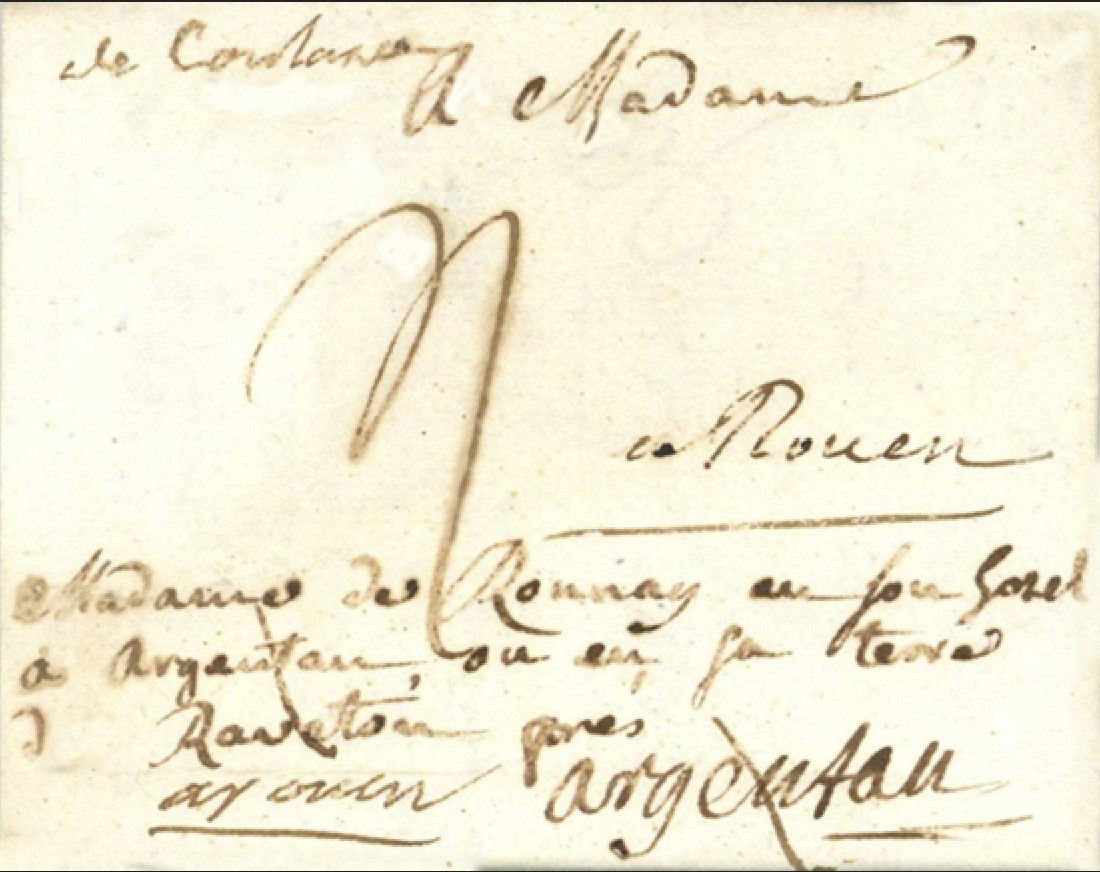 de Coutances
A Madame
a Rouen
Madame de Ronnay en son hotel
a argentan, ou en sa terre
Ravetou pres
a rouen argentan